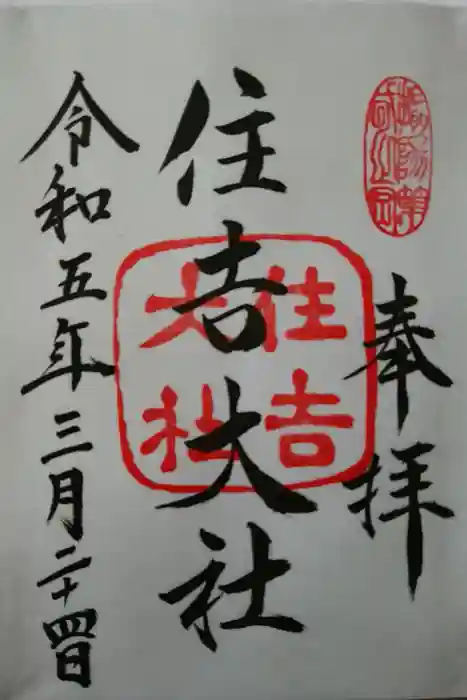 奉拝
住吉大社
住吉
大社
令和五年三月二十四日